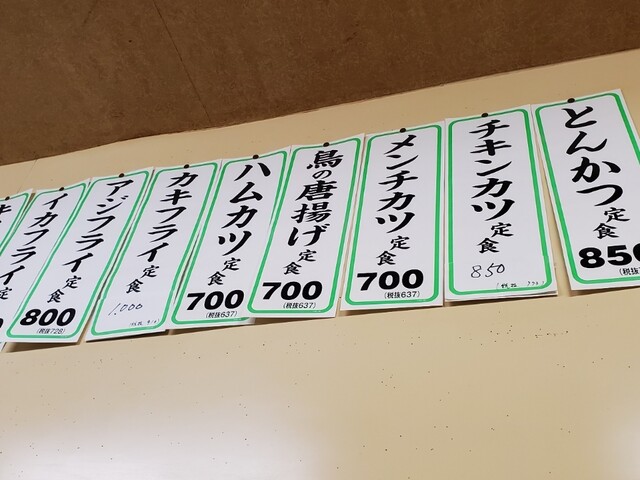 とんかつ定食
850
チキンカツ定食
850
メンチカツ定食
700
(税抜637)
鳥の唐揚げ定食
700
(税抜637)
ハムカツ定食
700
(税抜637)
カキフライ定食
アジフライ定食
1,000
イカフライ定食
800
(税抜728)
フライ定